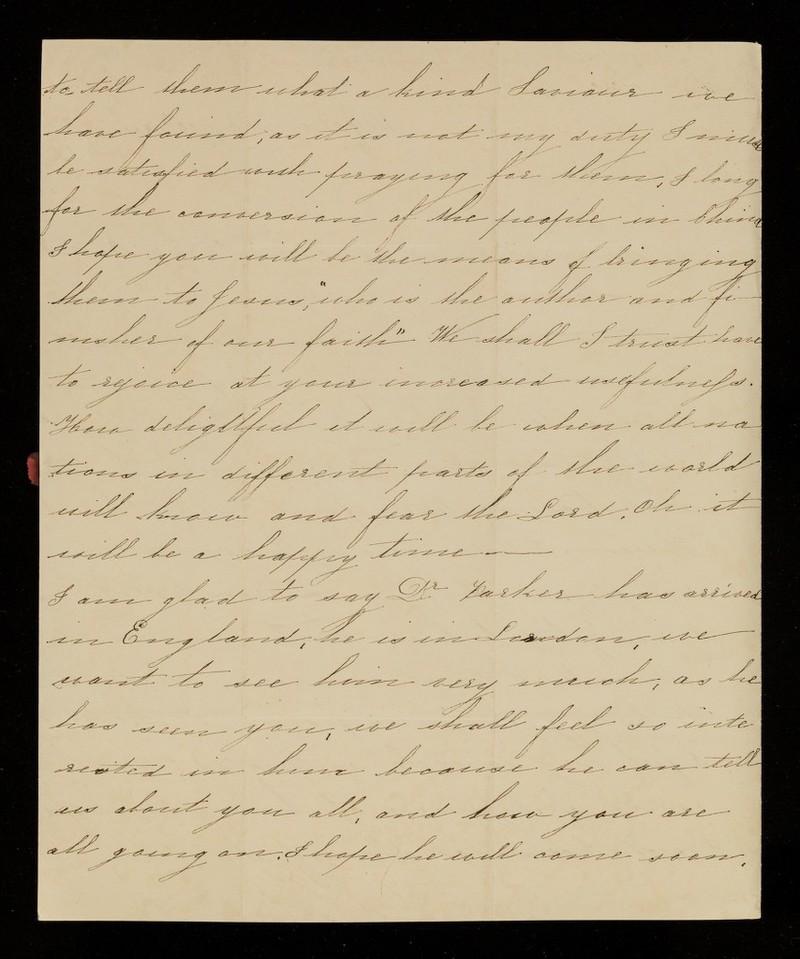 to tell them what a kind Saviour we
have found, as it is not my duty I must
be satisfied with praying for them, I long
for the conversion of the people in China
I hope you will be the means of bringing
them to Jesus, "who is the author and fi-
nisher of our faith" We shall I trust have
to rejoice at your increased usefulness.
How delightful it will be when all na
tions in different parts of the world
will know and fear the Lord. Oh it
will be a happy time —
I am glad to say Dr Parker has arrived
in England, he is in London, we
want to see him very much, as he
has seen you, we shall feel so inte
rested in him because he can tell
us about you all, and how you are
all going on. I hope he will come soon.